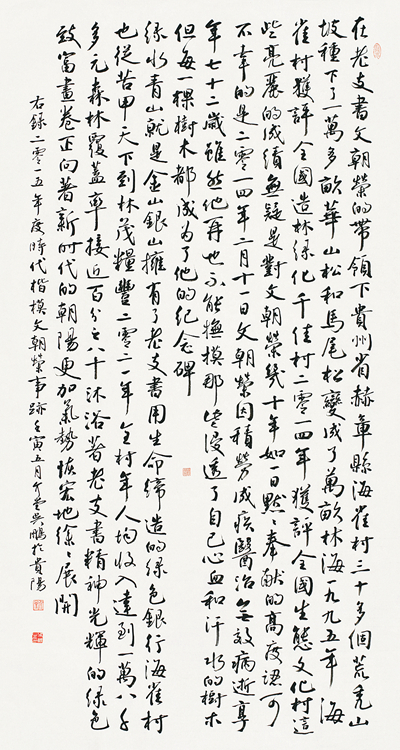 在老支書文朝榮的帶領下貴州省赫章縣海雀村三十多個荒禿山
坡種下了一萬多畝華山松和馬尾松變成了萬畝林海一九九五年海
雀村獲評全國造林綠化千佳村二零一四年獲評全國生態文化村這
些亮麗的成績無疑是對文朝榮幾十年如一日默々奉献的高度認可
不幸的是二零一四年二月十一日文朝榮因積勞成疾醫治無效病逝享
年七十二歲雖然他再也不能撫摸那些浸透了自己心血和汗水的樹木
但每一棵樹木都成為了他的紀念碑
綠水青山就是金山銀山擁有了老支書用生命締造的綠色銀行海雀村
也從苦甲天下到林茂糧豐二零二一年全村年人均收入達到一萬八千
多元森林覆蓋率接近百分之八十沐浴着老支書精神光輝的綠色
致富畫卷正向著新时代的朝陽更加氣勢恢宏地徐々展開
右錄二零一五年度時代楷模文朝榮事跡壬寅五月介堂吳鵬於貴陽